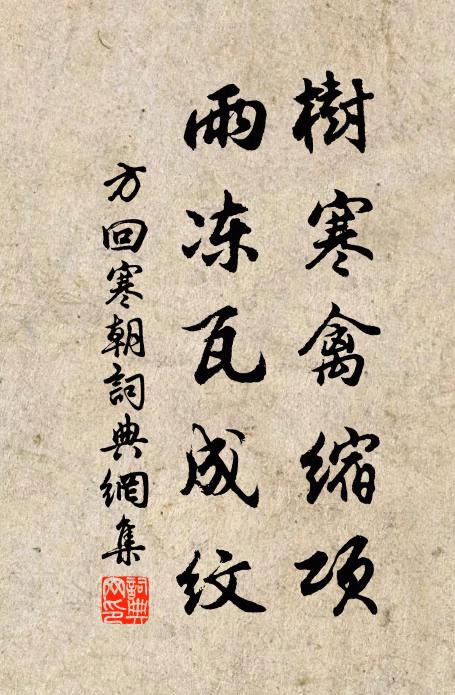 樹寒禽縮項
雨冻瓦成紋
方回寒朝詞典網集
詞典网印